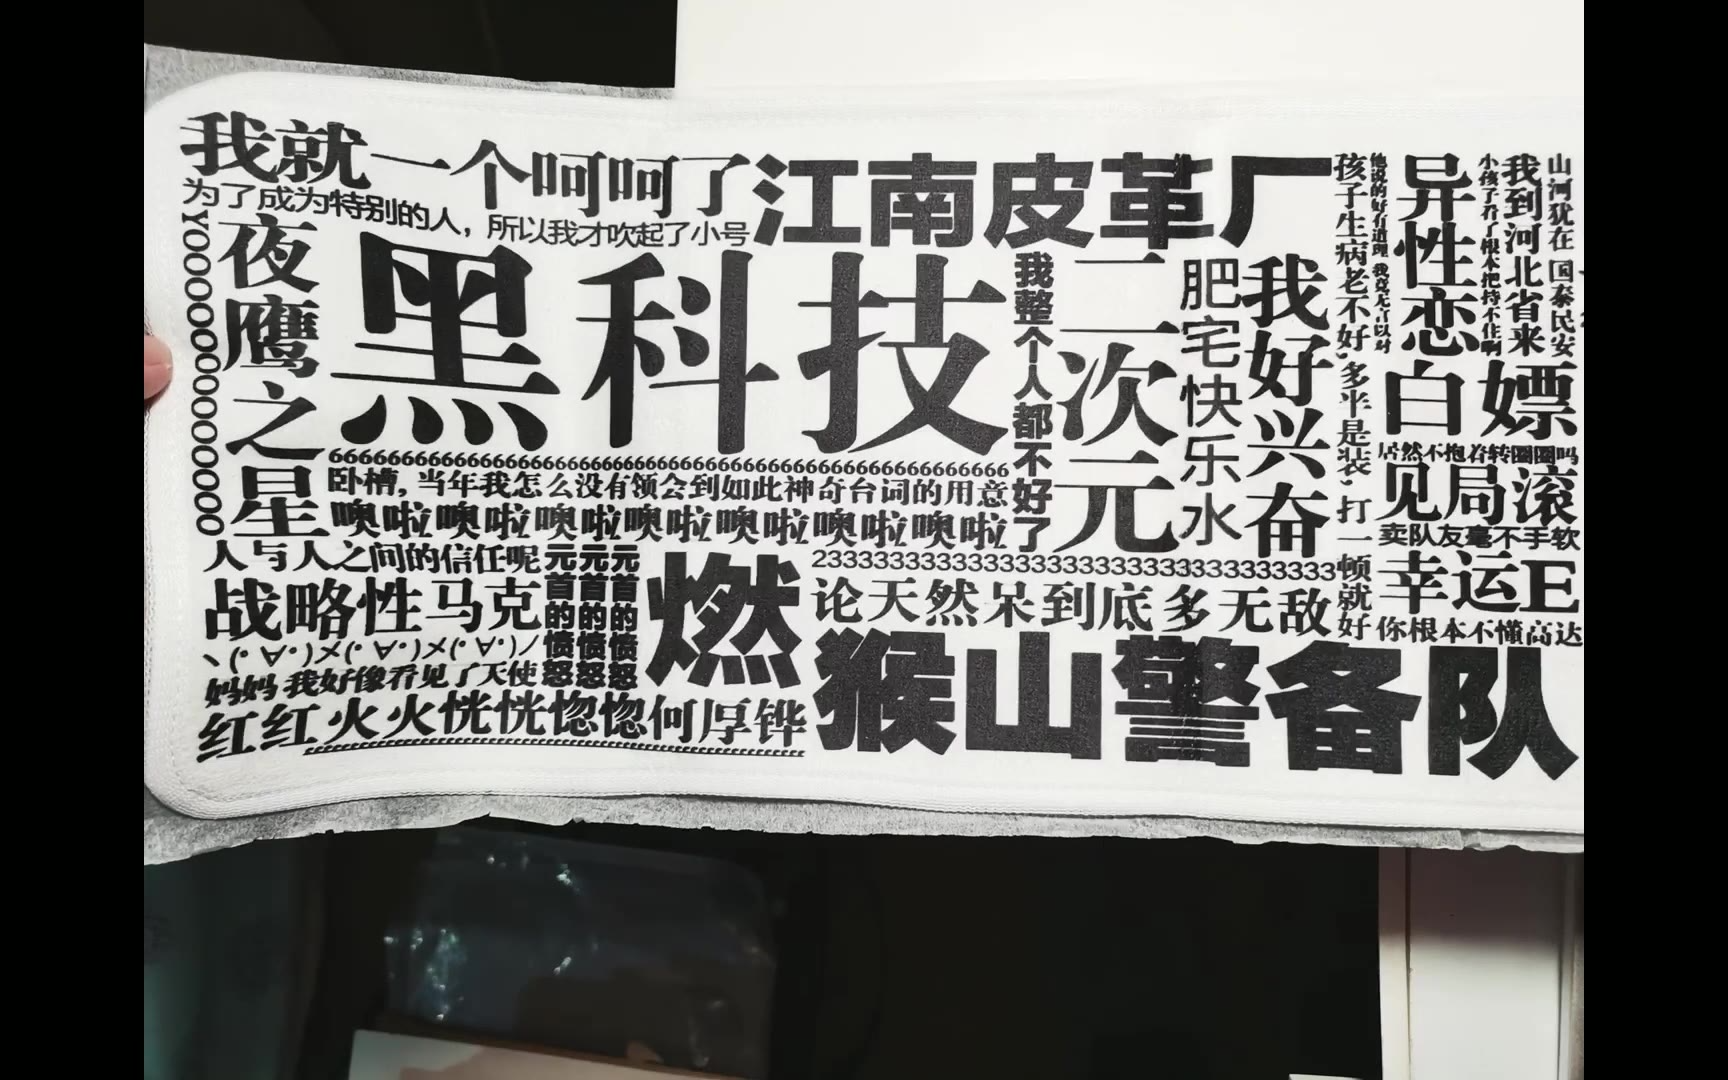 我就一个呵呵了
为了成为特别的人，所以我才吹起了小号
江南皮革厂
夜鹰之星
黑科技
我整个人都不好了
二次元
肥宅快乐水
我好兴奋
孩子生病老不好，多半是装，打一顿就好
他说的好有道理 我竟无言以对
异性恋
小孩子看了根本把持不住啊
我到河北省来
山河犹在 国泰民安
白嫖
居然不抱着转圈圈吗
见局滚
卖队友毫不手软
幸运E
你根本不懂高达
卧槽，当年我怎么没有领会到如此神奇台词的用意
噢啦噢啦噢啦噢啦噢啦噢啦噢啦
人与人之间的信任呢
战略性马克
ヽ(･∀･)メ(･∀･)メ(･∀･)ノ
妈妈 我好像看见了天使
红红火火恍恍惚惚何厚铧
元首的愤怒
元首的愤怒
元首的愤怒
燃
论天然呆到底多无敌
猴山警备队